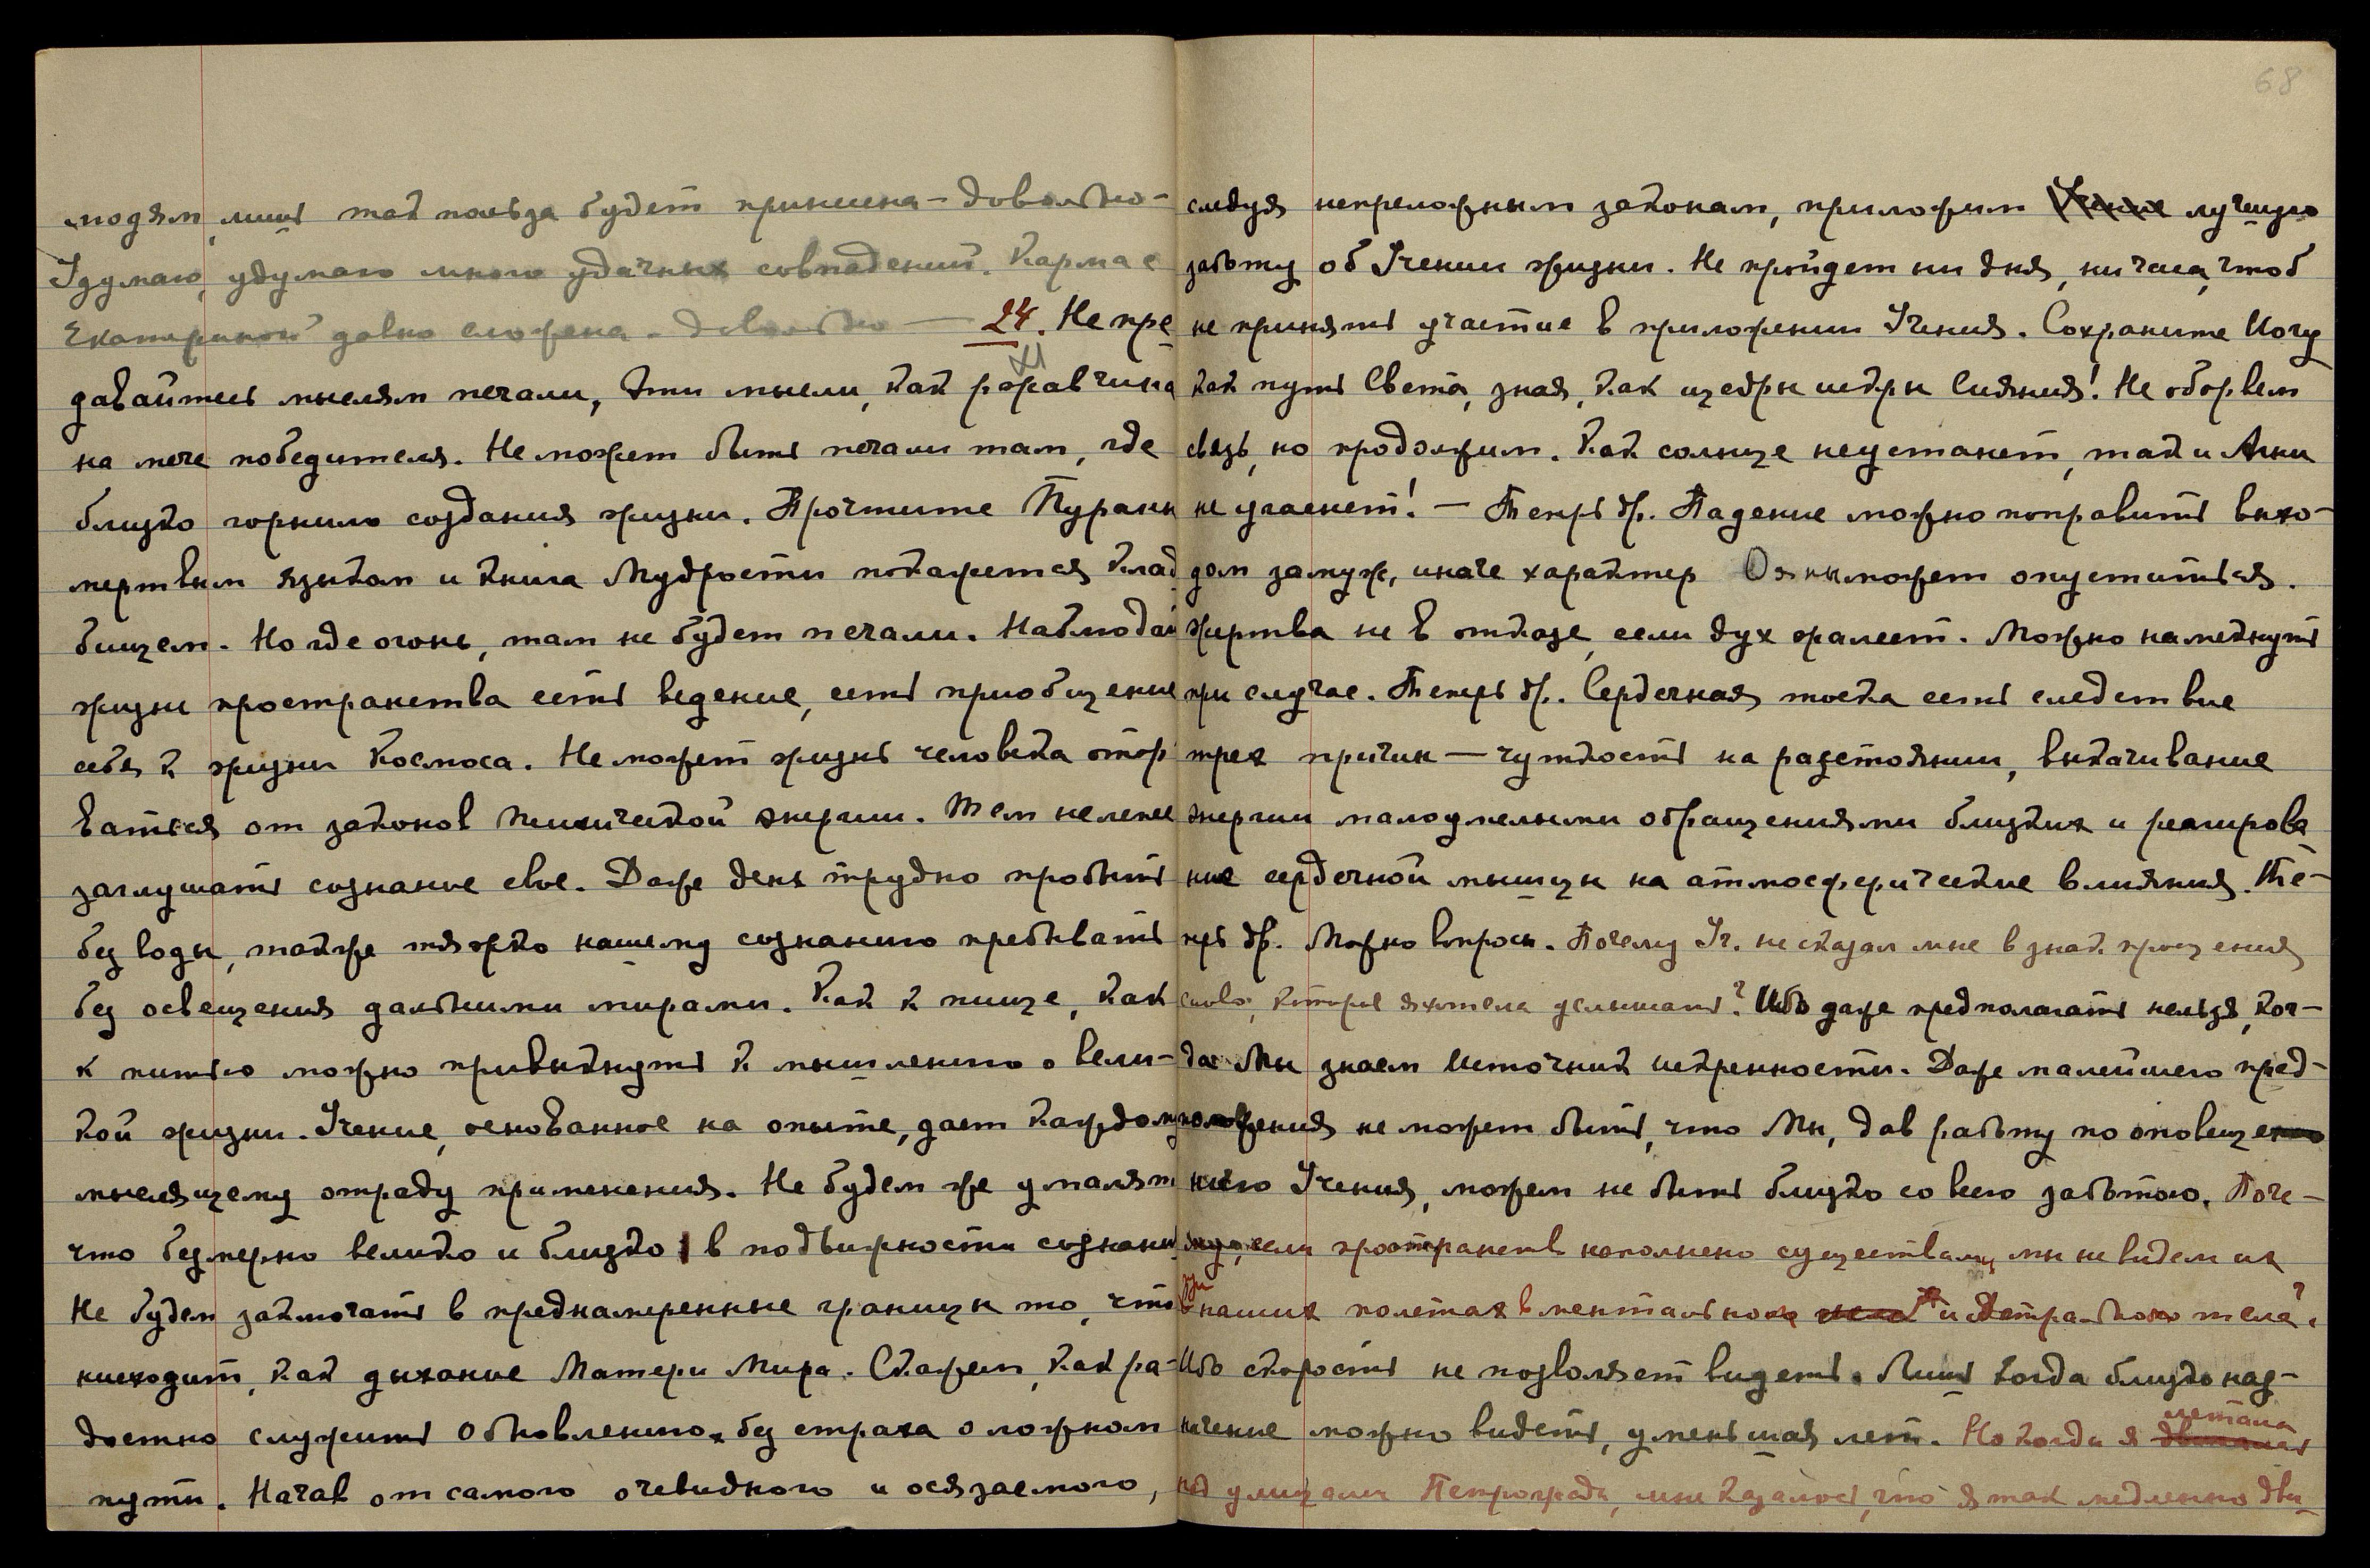 людям, лишь так польза будет принесена – довольно –
Удумаю, удумаю много удачных совпадений. Карма с
Екатериной давно сложена. Довольно — 24. Не пре
XI
давайтесь мыслям печали, эти мысли, как ржавчина
на мече победителя. Не может быть печали там, где
близко горнило создания жизни. Прочтите Пураны
мертвым языком и книга Мудрости покажется клад
бищем. Но где огонь, там не будет печали. Наблюдай
жизни пространства есть ведение, есть приобщение
себя к жизни Космоса. Не может жизнь человека отор
ваться от законов психической энергии. Тем нелепее
заглушать сознание свое. Даже день трудно пробыть
без воды, также тяжко нашему сознанию пребывать
без освещения дальними мирами. Как к пище, как
к питью можно привыкнуть к мышлению о вели-
кой жизни. Учение, основанное на опыте, дает каждому
мыслящему отраду применения. Не будем же умалять
что безмерно велико и близко в подвижности сознани
Не будем заключать в преднамеренные границы то, что
нисходит, как дыхание Матери Мира. Скажем, как ра-
достно служить Обновлению, без страха о ложном
пути. Начав от самого очевидного и осязаемого,
68
следуя непреложным законам, приложим Учение лучшую
заботу об Учении жизни. Не пройдет ни дня, ни часа, чтоб
не принять участие в приложении Учения. Сохраните Йогу
как путь Света, зная, как щедры искры Сияния! Не оборвем
связь, но продолжим. Как солнце не устанет, так и Агни
не угаснет! — Теперь др. Падение можно поправить выхо-
дом замуж, иначе характер Ояны может опуститься.
Жертва не в отказе, если дух жалеет. Можно намекнуть
при случае. Теперь др. Сердечная тоска есть следствие
трех причин — чуткость на расстоянии, выкачивание
энергии малоумелыми обращениями близких и реагирова
ние сердечной мышцы на атмосферические влияния. Те-
перь др. Можно вопросы. Почему Уч. не сказал мне в знак прощения
слова, которые я хотела услышать? Ибо даже предполагать нельзя, ког-
да Мы знаем Источник искренности. Даже малейшего пред-
положения не может быть, что Мы, дав работу по оповеще
нию Учения, можем не быть близко со всею заботою. Поче-
му, если пространств. наполнено существами, мы не видем их
при
наших полетах в ментальном теле и Астральном тела?
Ибо скорость не позволяет видеть. Лишь когда близко наз-
начение можно видеть, уменьшая лет. Но когда я двигалась
летала
над улицами Петрограда, мне казалось, что я так медленно дви-